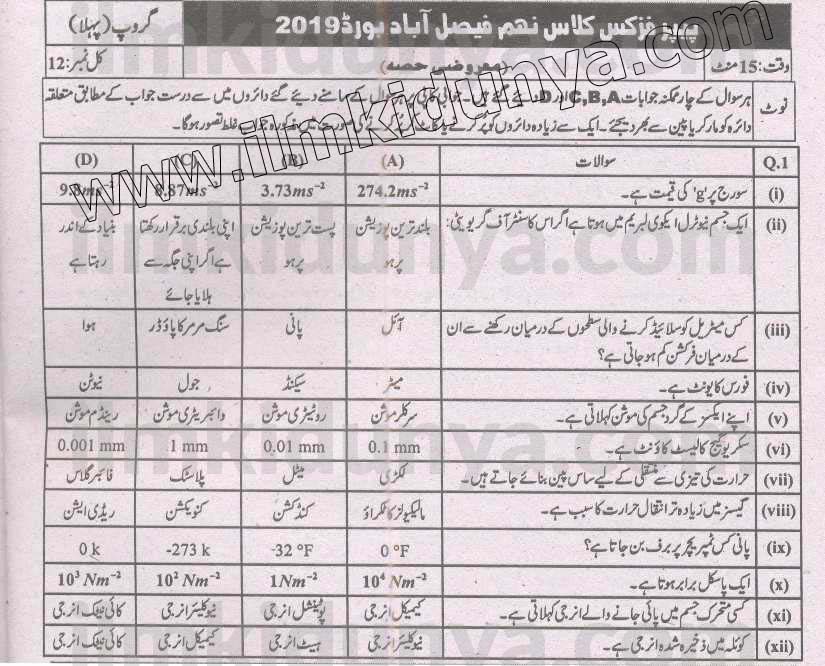 پیپر فزکس کلاس نہم فیصل آباد بورڈ 2019 گروپ (پہلا)
وقت: 15 منٹ (معروضی حصہ) کل نمبر: 12
نوٹ ہر سوال کے چار ممکنہ جوابات A,B,C اور D دئیے گئے ہیں۔ جوابی کاپی پر ہر سوال کے سامنے دیئے گئے دائروں میں سے درست جواب کے مطابق متعلقہ
دائرہ کو مارکر یا پین سے بھر دیجئے۔ ایک سے زیادہ دائروں کو پُر کرنے یا کاٹ کر پُر کرنے کی صورت میں مذکورہ جواب غلط تصور ہوگا۔
Q.1 سوالات (A) (B) (C) (D)
(i) سورج پر 'g' کی قیمت ہے۔ 274.2ms⁻² 3.73ms⁻² 8.87ms⁻² 9.8ms⁻²
(ii) ایک جسم نیوٹرل ایکوی لبریم میں ہوتا ہے اگر اس کا سنٹر آف گریویٹی: بلند ترین پوزیشن پست ترین پوزیشن اپنی بلندی برقرار رکھتا بنیاد کے اندر
پر ہو پر ہو ہے اگر اپنی جگہ سے رہتا ہے
ہلایا جائے
(iii) کس میٹریل کو سلائیڈ کرنے والی سطحوں کے درمیان رکھنے سے ان آئل پانی سنگ مرمر کا پاؤڈر ہوا
کے درمیان فرکشن کم ہو جاتی ہے؟
(iv) فورس کا یونٹ ہے۔ میٹر سیکنڈ جول نیوٹن
(v) اپنے ایکسز کے گرد جسم کی موشن کہلاتی ہے۔ سرکلر موشن روٹیٹری موشن وائبریٹری موشن رینڈم موشن
(vi) سکریو گیج کا لیسٹ کاؤنٹ ہے۔ 0.1 mm 0.01 mm 1 mm 0.001 mm
(vii) حرارت کی تیزی سے منتقلی کے لیے ساس پین بنائے جاتے ہیں۔ لکڑی میٹل پلاسٹک فائبر گلاس
(viii) گیسز میں زیادہ تر انتقال حرارت کا سبب ہے۔ مالیکیولز کا ٹکراؤ کنڈکشن کنویکشن ریڈی ایشن
(ix) پانی کس ٹمپریچر پر برف بن جاتا ہے؟ 0 °F -32 °F -273 k 0 k
(x) ایک پاسکل برابر ہوتا ہے۔ 10⁴ Nm⁻² 1Nm⁻² 10² Nm⁻² 10³ Nm⁻²
(xi) کسی متحرک جسم میں پائی جانے والے انرجی کہلاتی ہے۔ کیمیکل انرجی پوٹینشل انرجی نیوکلیئر انرجی کائی نیٹک انرجی
(xii) کوئلہ میں ذخیرہ شدہ انرجی ہے۔ نیوکلیئر انرجی ہیٹ انرجی کیمیکل انرجی کائی نیٹک انرجی
www.ilmkidunya.com
ilmkidunya.com
ilmkidunya.com